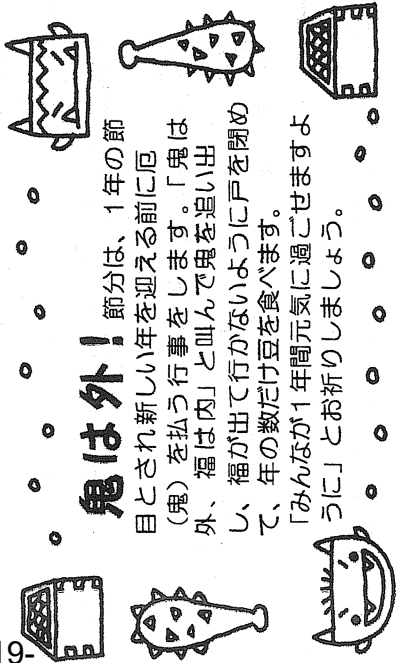 鬼は外！ 節分は、1年の節
目とされ新しい年を迎える前に厄
（鬼）を払う行事をします。「鬼は
外、福は内」と叫んで鬼を追い出
し、福が出て行かないように戸を閉め
て、年の数だけ豆を食べます。
「みんなが1年間元気に過ごせますよ
うに」とお祈りしましょう。
19-